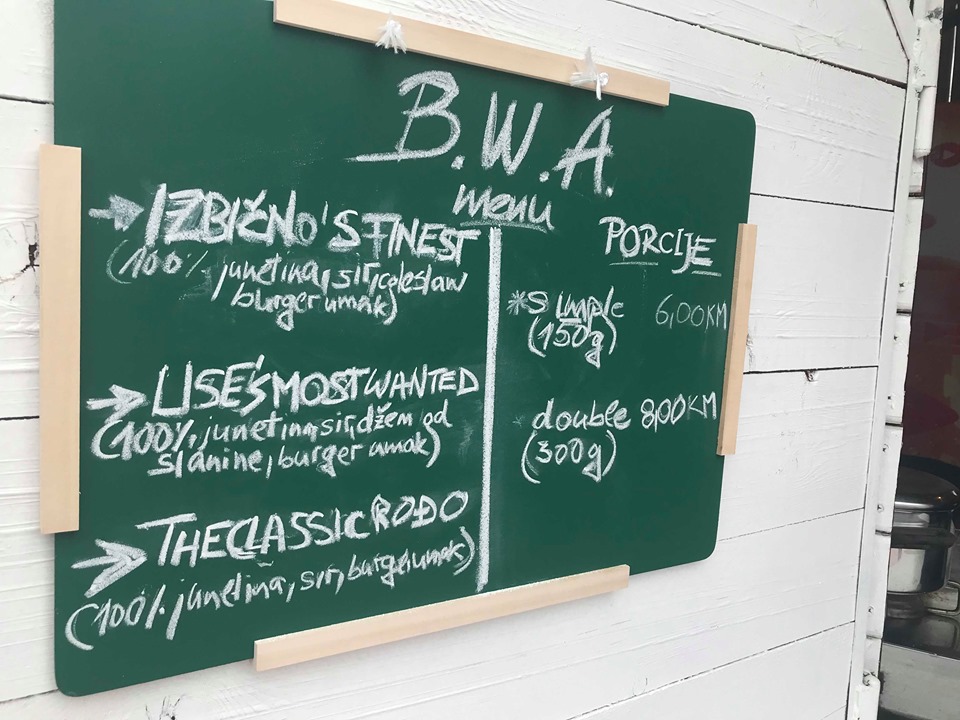 B.W.A.
menu
IZBIČNO'S FINEST
(100% junetina, sir, coleslaw
burger umak)
LISE'S MOST WANTED
(100% junetina, sir, džem od
slanine, burger umak)
THE CLASSIC ROĐO
(100% junetina, sir, burger umak)
PORCIJE
*simple 6,00KM
(150g)
*double 8,00KM
(300g)